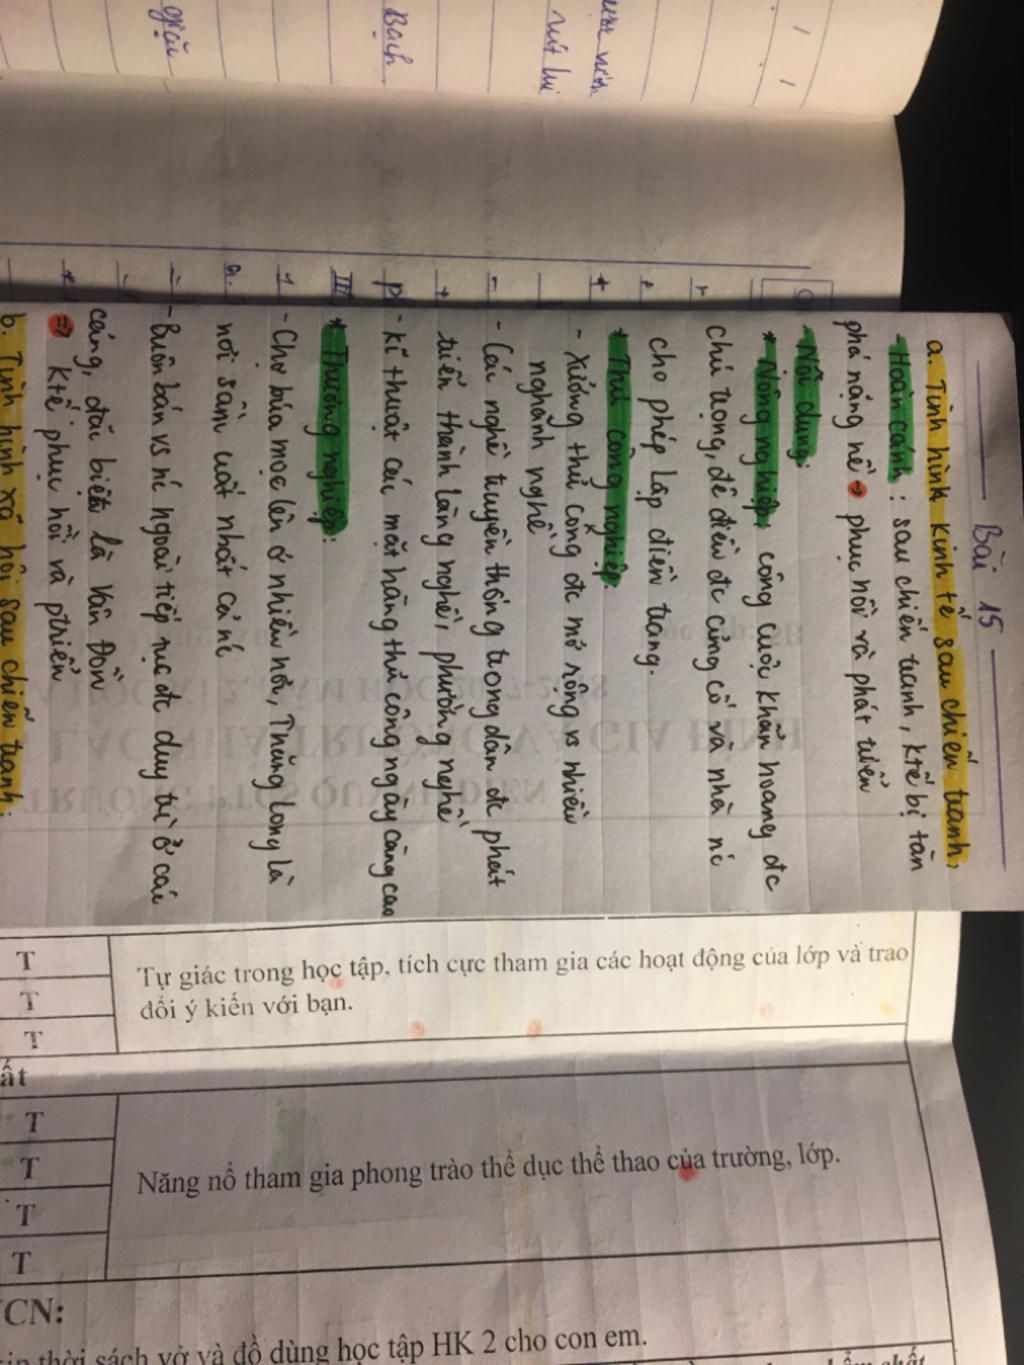 Bài 15
a. Tình hình kinh tế sau chiến tranh:
- Hoàn cảnh: sau chiến tranh, ktế bị tàn
phá nặng nề => phục hồi và phát triển
- Nội dung:
* Nông nghiệp: công cuộc khẩn hoang đc
chú trọng, đê điều đc củng cố và nhà nc
cho phép lập điền trang.
* Thủ công nghiệp:
- xưởng thủ công đc mở rộng vs nhiều
nghành nghề
- Các nghề truyền thống trong dân đc phát
triển thành làng nghề, phường nghề
- kĩ thuật các mặt hàng thủ công ngày càng cao
* Thương nghiệp:
- Chợ búa mọc lên ở nhiều nơi, Thăng Long là
nơi sầm uất nhất cả nc
- Buôn bán vs nc ngoài tiếp tục đc duy trì ở các
cảng, đặc biệt là Vân Đồn
=> Ktế phục hồi và ptriển
b. Tình hình xã hội sau chiến tranh:
rút lui
Bạch
giặc
III
T
T
T
Tự giác trong học tập, tích cực tham gia các hoạt động của lớp và trao
đổi ý kiến với bạn.
ất
T
T
T
T
Năng nổ tham gia phong trào thể dục thể thao của trường, lớp.
CN:
thời sách vở và đồ dùng học tập HK 2 cho con em.
chất